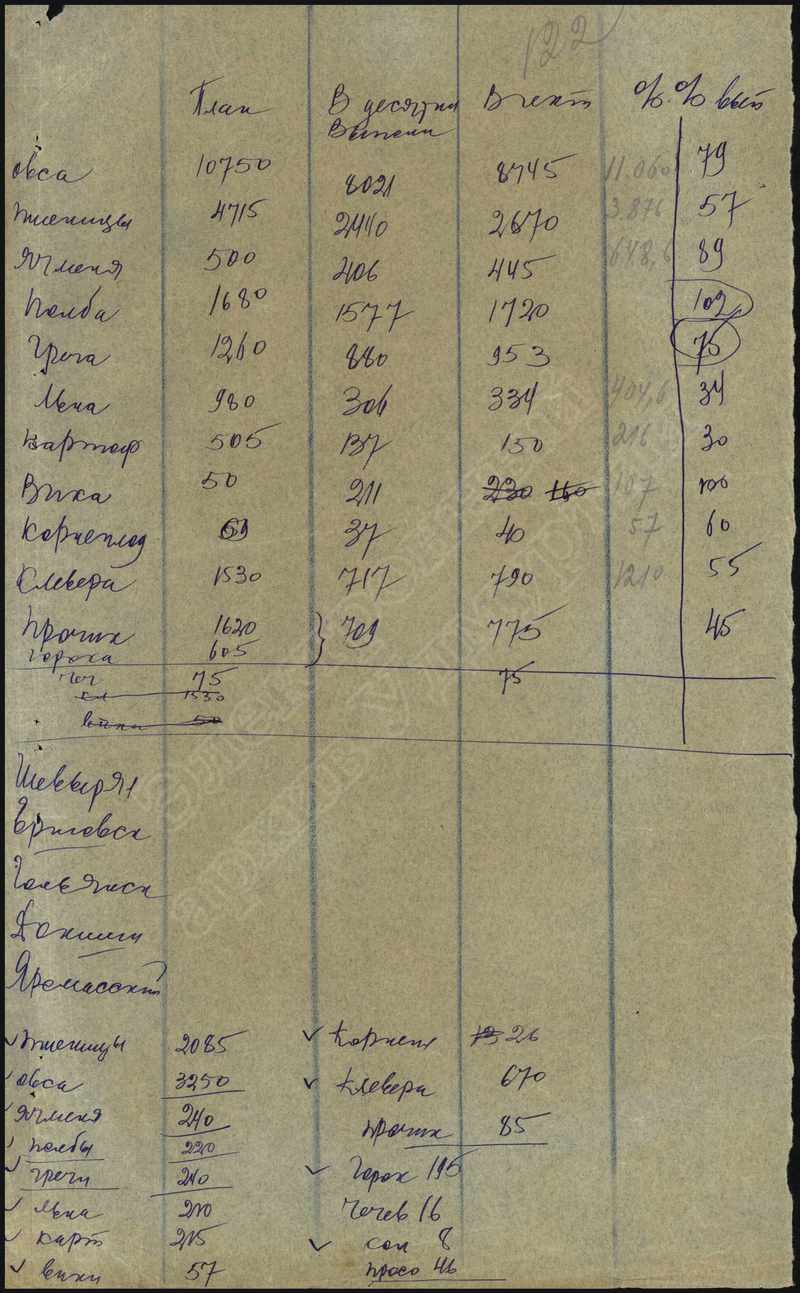 122
План В десятин В гект %.% вып
Выполн
овса 10750 8021 8745 11.060 79
пшеницы 4715 2440 2670 3.876 57
ячменя 500 406 445 648,6 89
Полба 1680 1577 1720 102
Греча 1260 880 953 75
Льна 980 306 334 404,6 34
Картоф 505 137 150 216 30
Вика 50 211 230 160 107 100
Корнеплод 37 40 57 60
Клевера 1530 717 790 1210 55
Прочих 1620 709 775 45
гороха 605
Чеч 75 75
кл 1530
вики 50
Шевырял
Гольянск
Докши
Пшеницы 2085 Корнепл 26
овса 3250 Клевера 670
ячменя 240 прочих 85
полбы 220
гречи 240 Горох 195
льна 210 Чечев 16
карт 215 сои 8
вики 57 просо 46